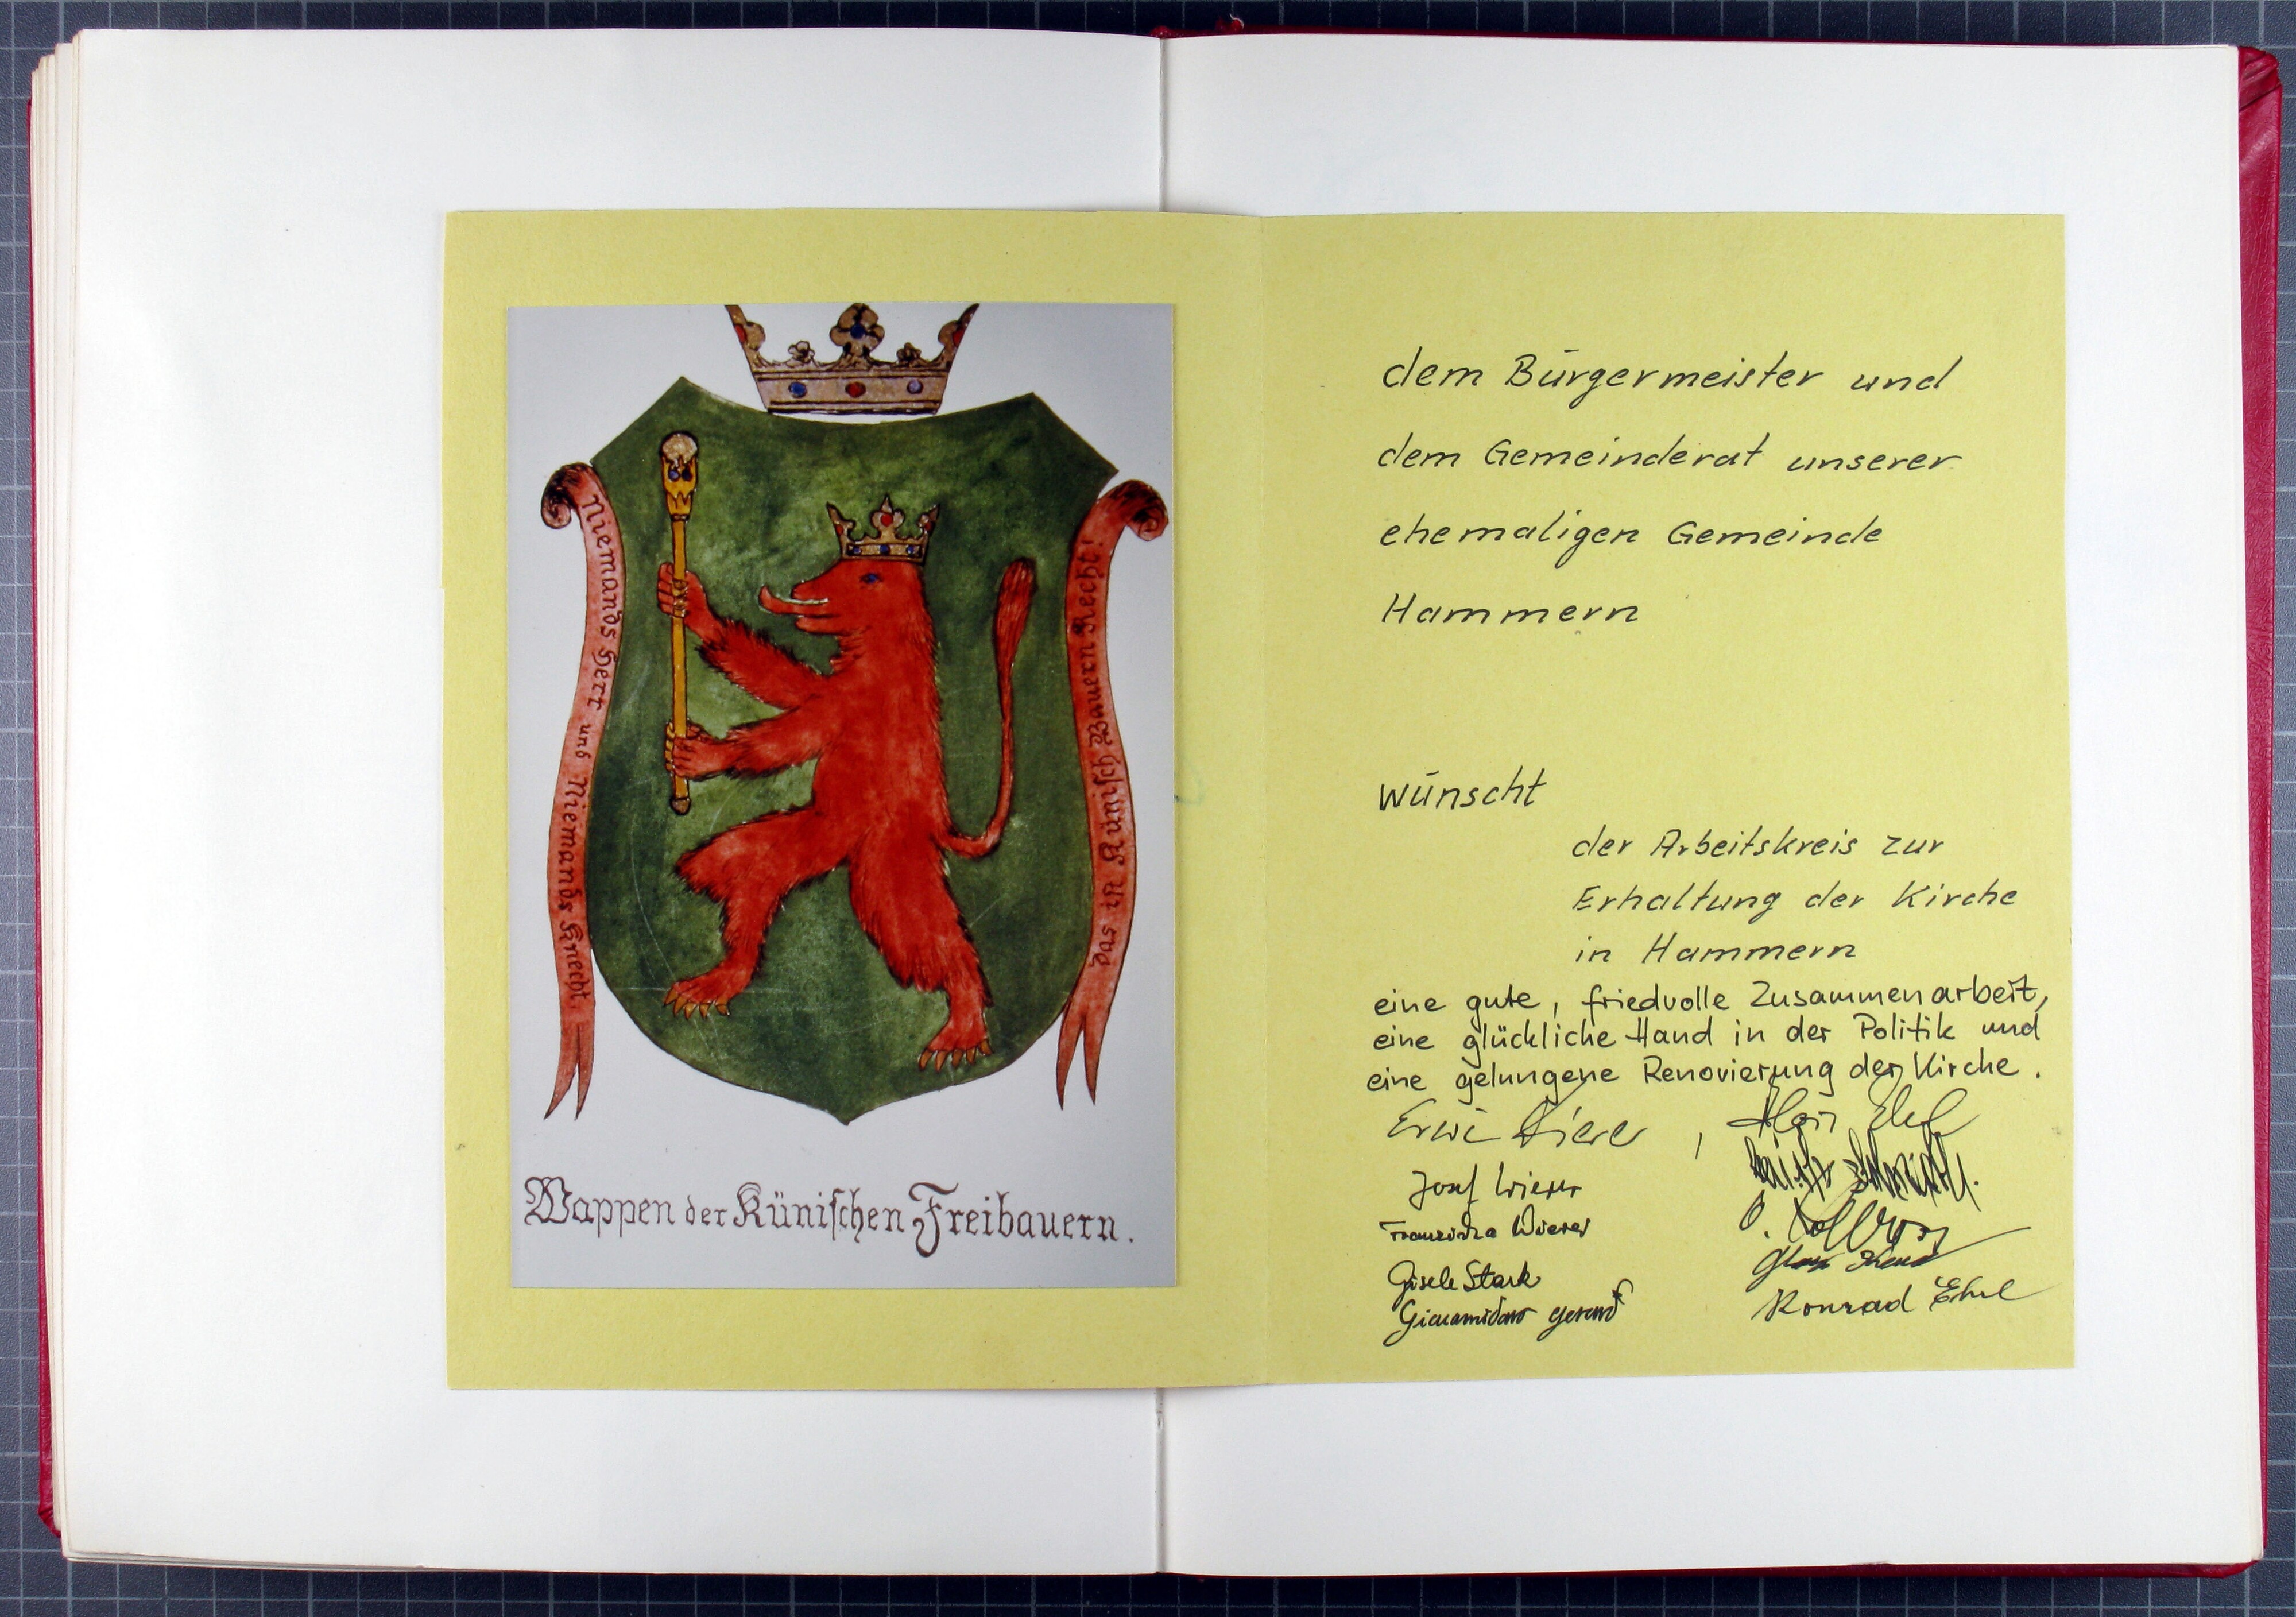 Niemands Herr und Niemands Knecht
das ist Künisch Bauern Recht!
Wappen der Künischen Freibauern.
dem Bürgermeister und
dem Gemeinderat unserer
ehemaligen Gemeinde
Hammern
wünscht
der Arbeitskreis zur
Erhaltung der Kirche
in Hammern
eine gute, friedvolle Zusammenarbeit,
eine glückliche Hand in der Politik und
eine gelungene Renovierung der Kirche.
Josef
Gisele Stark
Konrad Ehrl